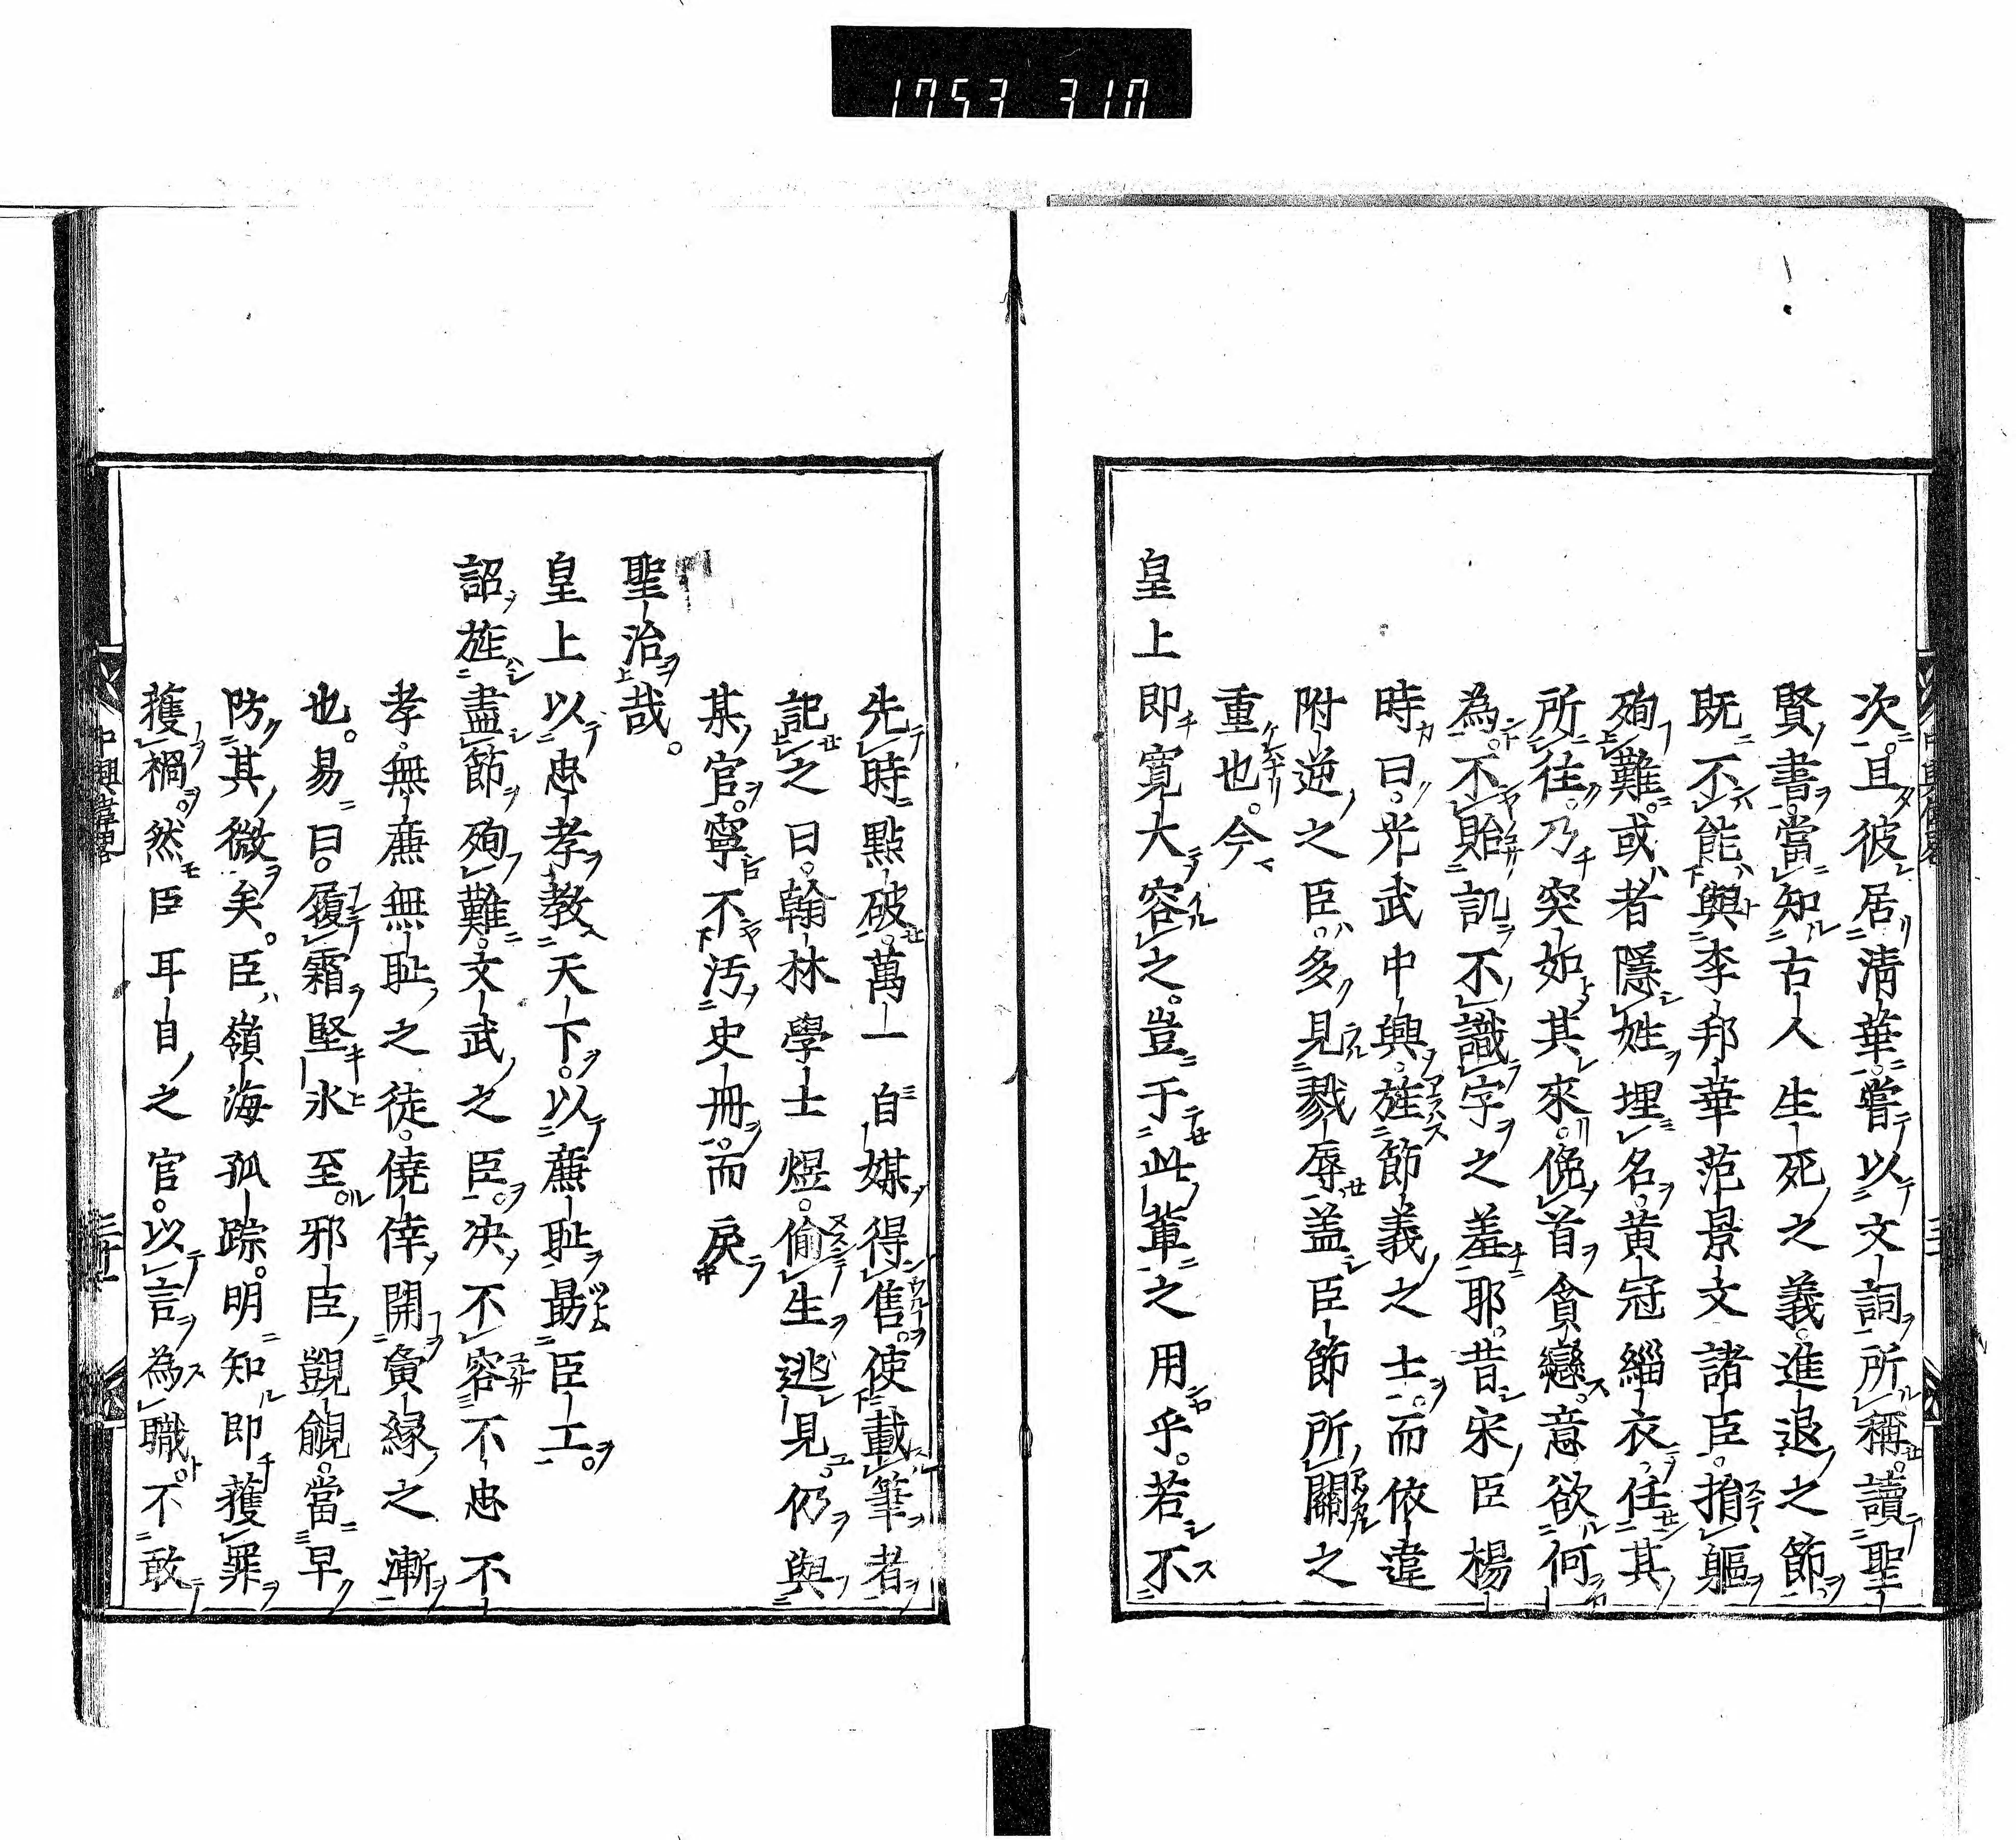 1753 310
次且彼居清華嘗以文詞所稱讀聖
賢書當知古人生死之義進退之節
既不能與李邦華范景文諸臣捐軀
殉難或者隱姓埋名黃冠緇衣任其
所往乃突如其來俛首貪戀意欲何
為不貽訕不識字之羞耶昔宋臣楊
時曰光武中興旌節義之士而依違
附逆之臣多見戮辱盖臣節所關之
重也今
皇上即寬大容之豈于此軰之用乎若不
先時點破萬一自媒得售使載筆者
記之曰翰林學士煜偷生逃見仍與
某官寧不汚史冊而戾
聖治哉
皇上以忠孝教天下以亷耻勗臣工
詔旌盡節殉難文武之臣決不容不忠不
孝無亷無耻之徒僥倖開夤緣之漸
也易曰履霜堅氷至邪臣覬覦當早
防其微矣臣嶺海孤踪明知即獲罪
獲禍然臣耳目之官以言為職不敢
中興偉畧
三十一